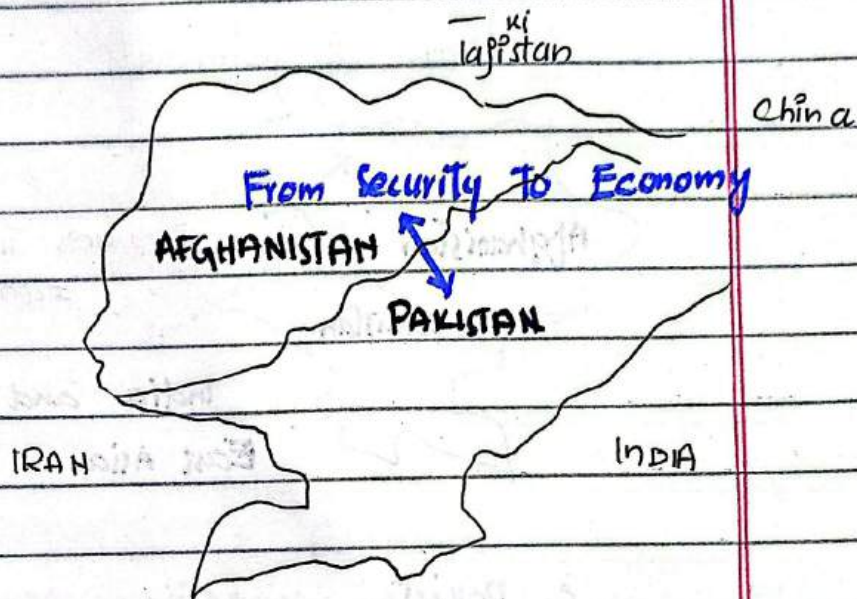 Tajikistan
China
From Security To Economy
AFGHANISTAN
PAKISTAN
IRAN
INDIA